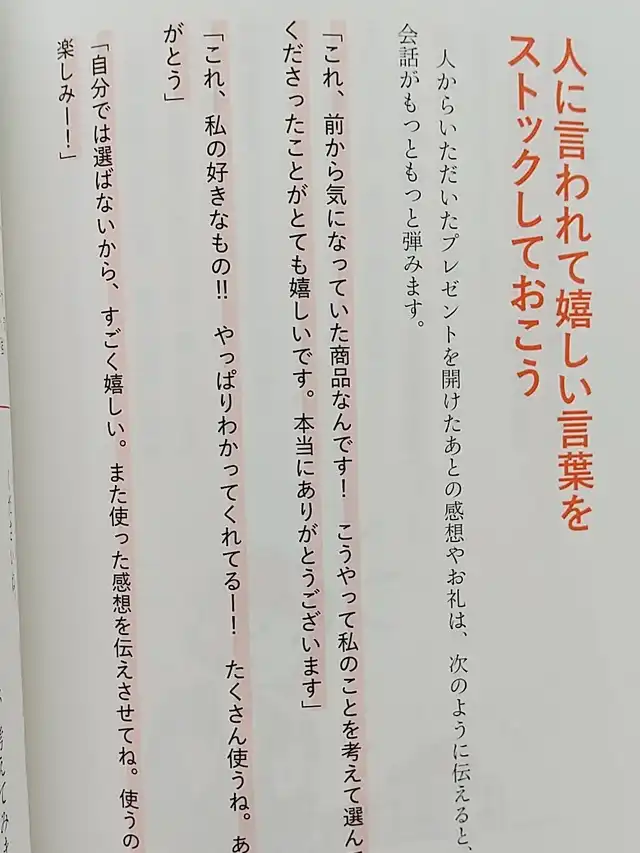 人に言われて嬉しい言葉を
ストックしておこう
人からいただいたプレゼントを開けたあとの感想やお礼は、次のように伝えると、
会話がもっともっと弾みます。
「これ、前から気になっていた商品なんです！　こうやって私のことを考えて選んで
くださったことがとても嬉しいです。本当にありがとうございます」
「これ、私の好きなもの!!　やっぱりわかってくれてるー！　たくさん使うね。あ
がとう」
「自分では選ばないから、すごく嬉しい。また使った感想を伝えさせてね。使うの
楽しみー！」